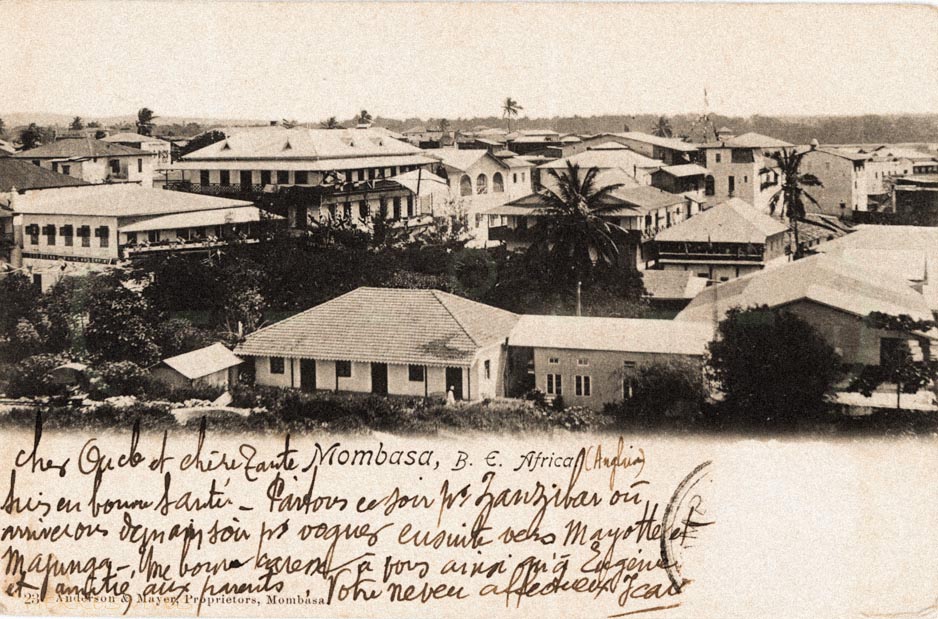 cher Oncle et chère Tante Mombasa, B. E. Africa
suis en bonne santé – Partons ce soir pr Zanzibar où
arriverons demain soir pr voguer ensuite vers Mayotte et
Majunga –, bonne à vous ainsi qu'à Eugénie
et amitiés aux parents, Votre neveu affectueux Jean
23 Anderson & Mayer, Proprietors, Mombasa.